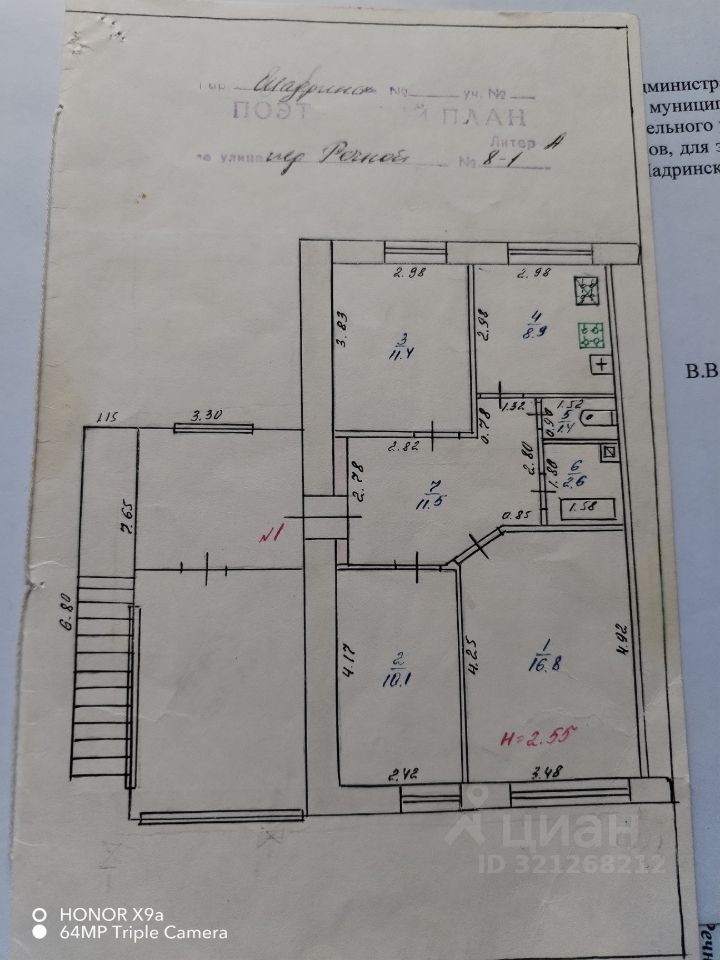 гор. Шадринск № уч. №
ПОЭТ Й ПЛАН
Литер А
по улице пер Речной № 8-1
министр
муници
ельного
ов, для з
Шадринск
В.В
2.98
2.98
3.83
3
11.4
2.98
4
8.9
1.15
3.30
1.32
1.52
0.90
5
1.4
0.78
2.82
2.78
7
11.5
2.80
1.80
6
2.6
1.58
0.85
7.65
№1
6.80
4.17
2
10.1
4.25
1
16.8
4.92
Н=2.55
2.42
3.48
циан
ID 321268212
HONOR X9a
64MP Triple Camera
Речн